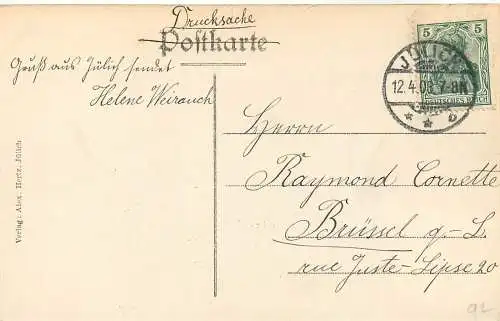 Drucksache
Postkarte
Gruß aus Jülich sendet
Helene Weirauch
JÜLICH
12.4.08. 7-8N.
5 5
DEUTSCHES REICH
Herrn
Raymond Cornette
Brüssel q.-L.
rue Juste-Lipse 20
Verlag: Alex. Hertz, Jülich
92